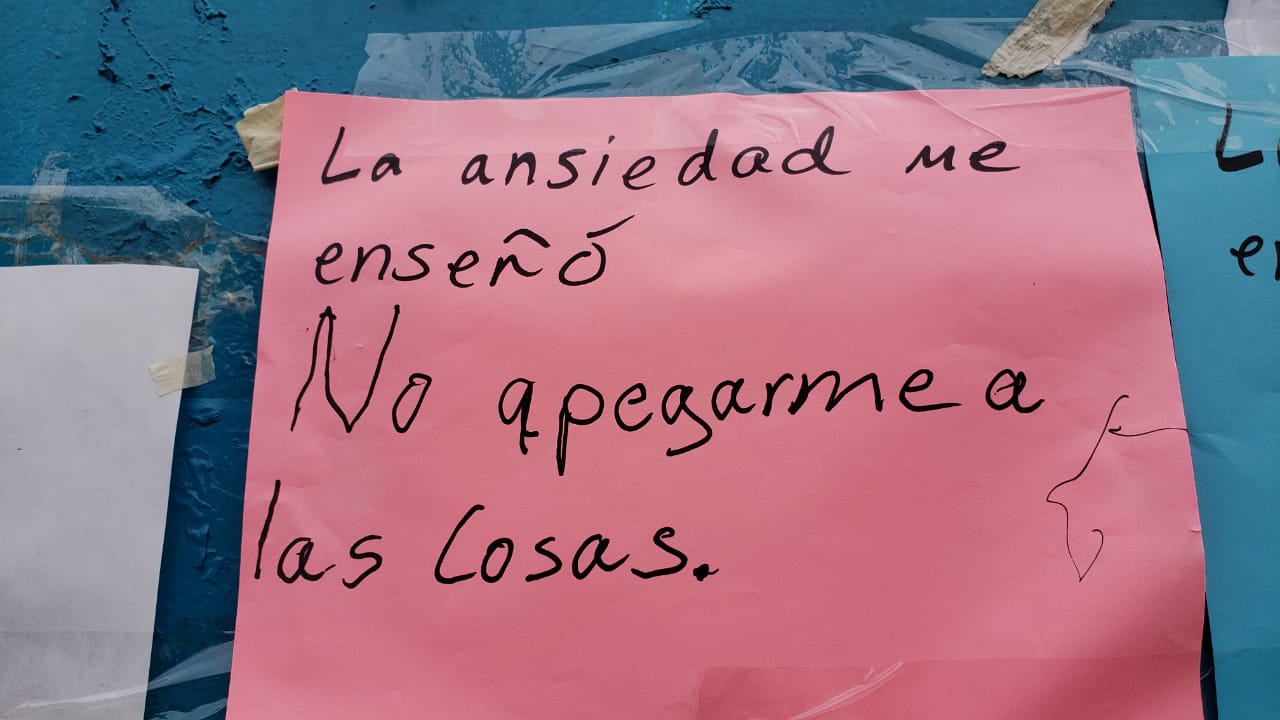 La ansiedad me
enseñó
No apegarme a
las cosas.